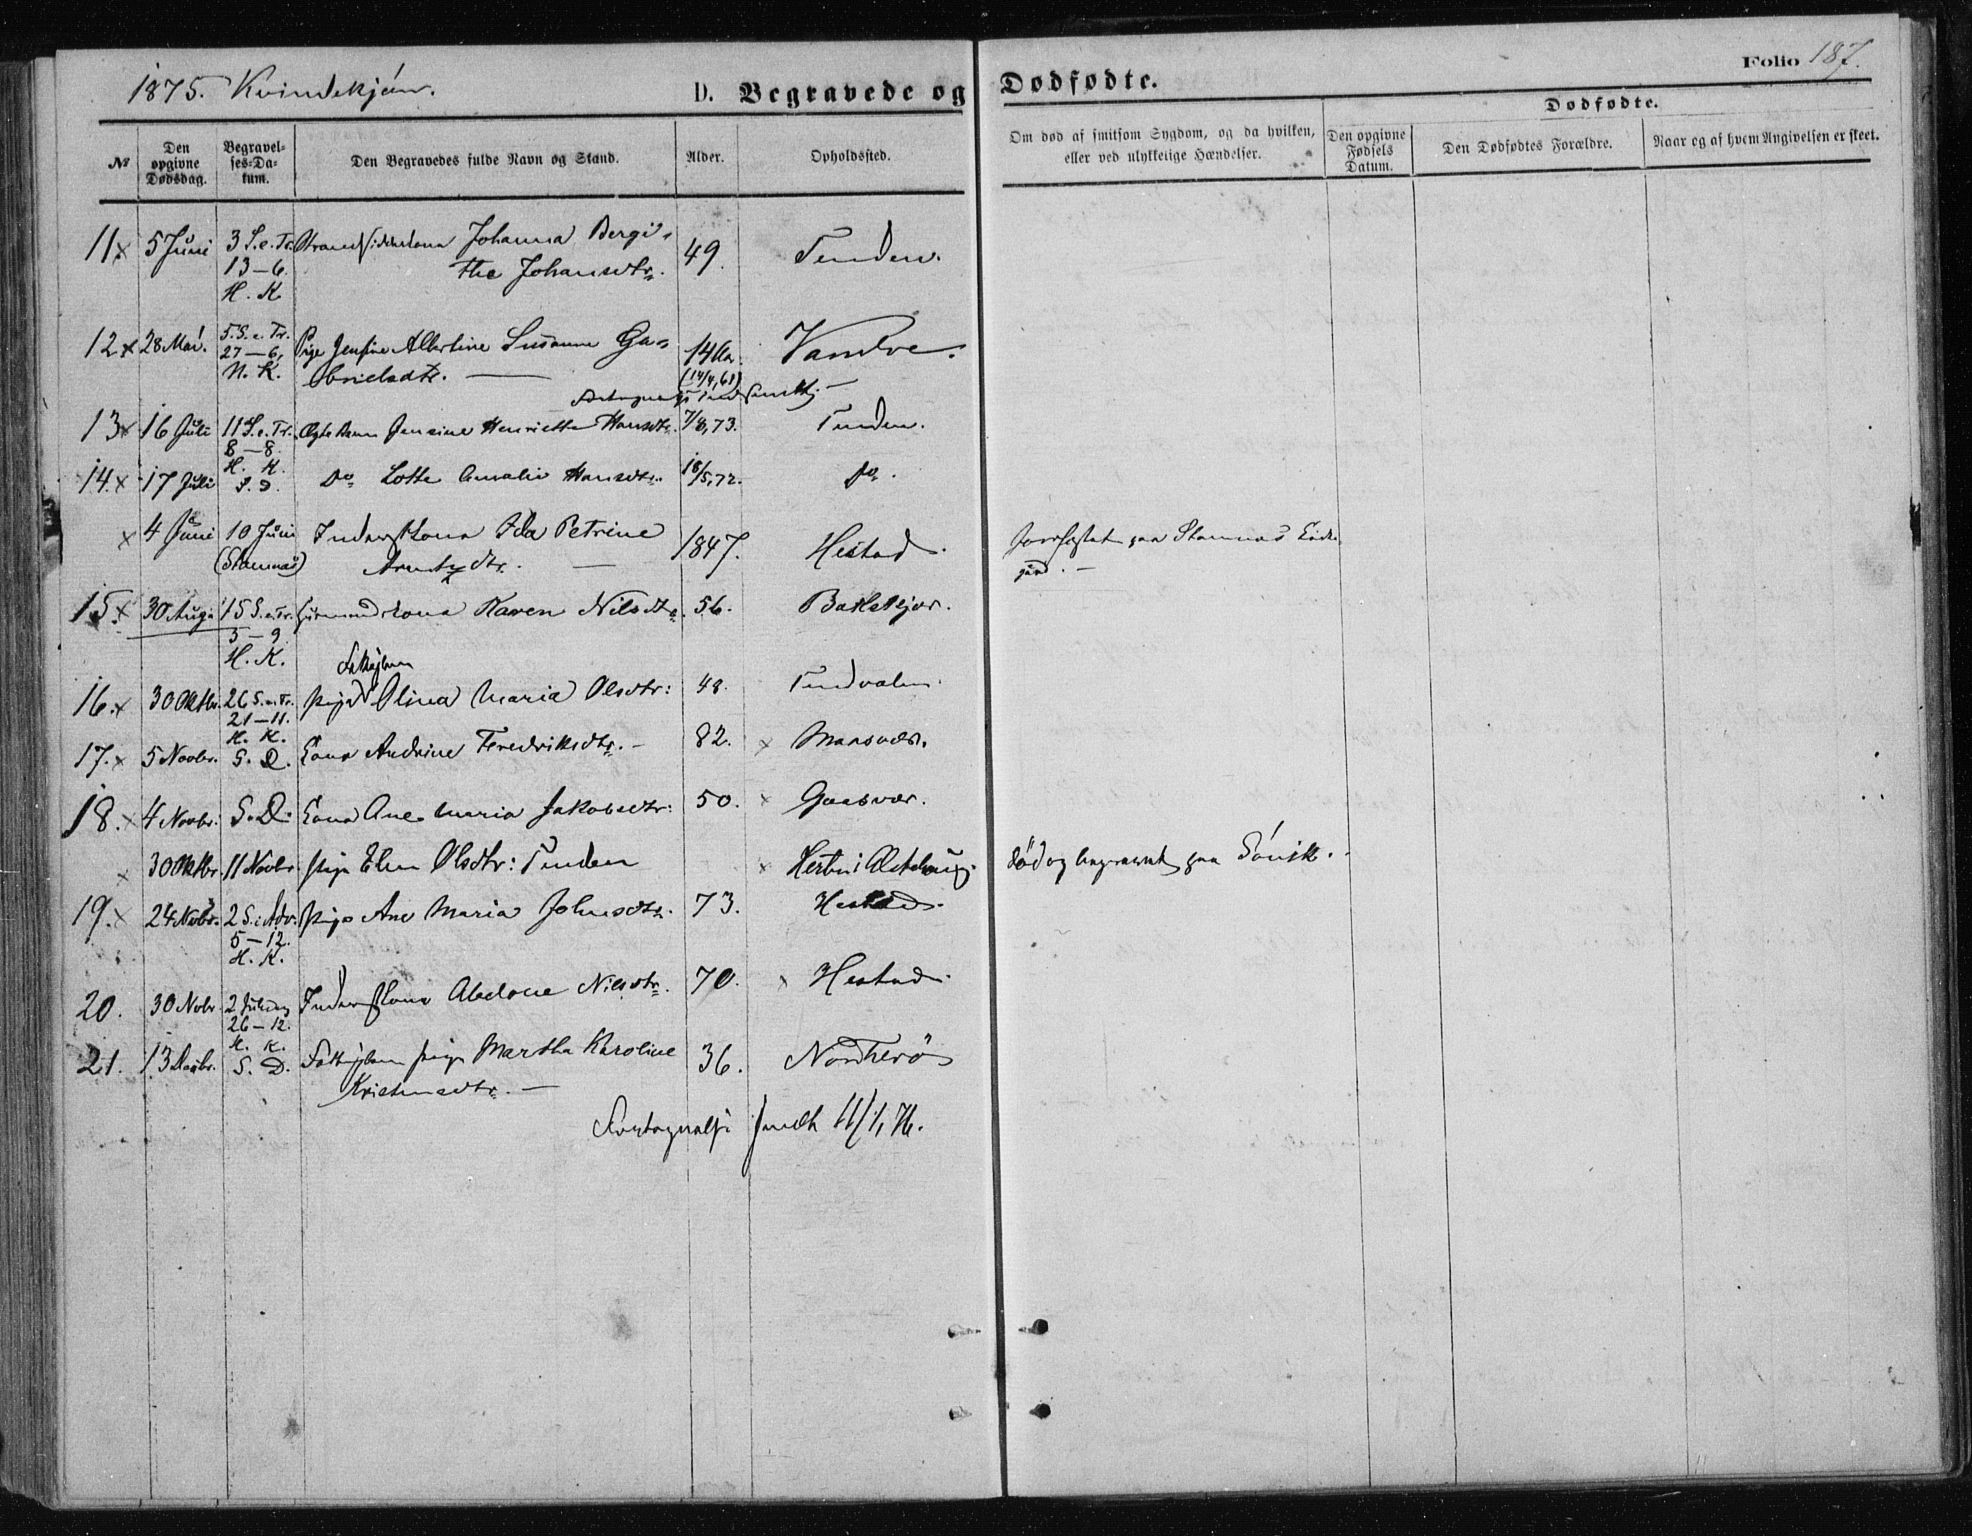 1875. Kvindekjön.
D. Begravede og Dødfødte.
Folio 187.
Dødfødte.
№
Den opgivne Dødsdag.
Begravelses-Datum.
Den Begravedes fulde Navn og Stand.
Alder.
Opholdssted.
Om død af smitsom Sygdom, og da hvilken, eller ved ulykkelige Hændelser.
Den opgivne Fødsels Datum.
Den Dødfødtes Forældre.
Naar og af hvem Angivelsen er skeet.
11 x 5 Juni 3 S. e. Tr. Johanna Bergi- 49. Tenden.
13-6. the Johansdtr.
H. K.
12 x 28 Mai. 5. S. e. Tr. Pige Jensine Albertine Susanne Ga- 14 Aar. Vandve.
27-6, brielsdtr. — (14/4, 61)
N. K.
13 x 16 Juli 11 S. e. Tr. Jensine Henriette Hansdtr. 7/8, 73. Tenden.
8-8.
H. K.
14. x 17 Juli S. D. Do Lotte Amalie Hansdtr. 18/5, 72. Do.
x 4 Juni 10 Juni Inderstkona Ida Petrine 1847. Hestad. paa Stamnæs
(Stamnæs) Arntzdtr. —
15 x 30 Aug. 15 S. e. Tr. Karen Nilsdtr. 56.
5-9
H. K.
16. x 30 Oktbr. 26 S. e. Tr. pige Olina Maria Olsdtr: 48. Tendvalen.
21-11.
H. K.
17. x 5 Novbr. S. D. Kona Andrine Fredriksdtr. — 82. x Maasvær.
18. x 4 Novbr. S. D. Kona Ane Maria Jakobsdtr: 50. x Gaasvær.
x 30 Oktbr. 11 Novbr. pige Elen Olsdtr: Tenden x död og begravet paa
19. x 24 Novbr. 2 S. i Adv. pige Ane Maria Johnsdtr. 73. Hestad.
5-12.
H. K.
20. 30 Nobr. 2 Juledag Inderstkona Abelone Nilsdtr. 70. x Hestad.
26-12.
H. K.
21. 13 S. D. pige Martha Karoline 36. Nordherö
Kristensdtr. —
11/1, 76.